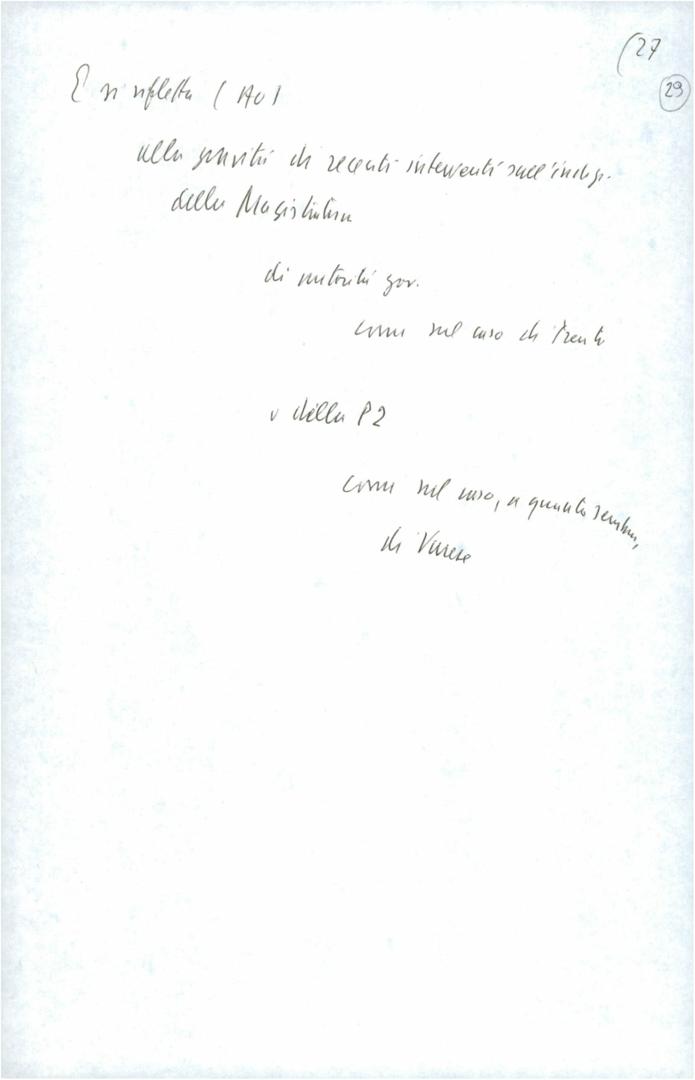 (27
29
E si rifletta (
alla gravità di recenti interventi sull'indip.
della Magistratura
di autorità gov.
come nel caso di Trento
o della P2
come nel caso, a quanto sembra,
di Varese